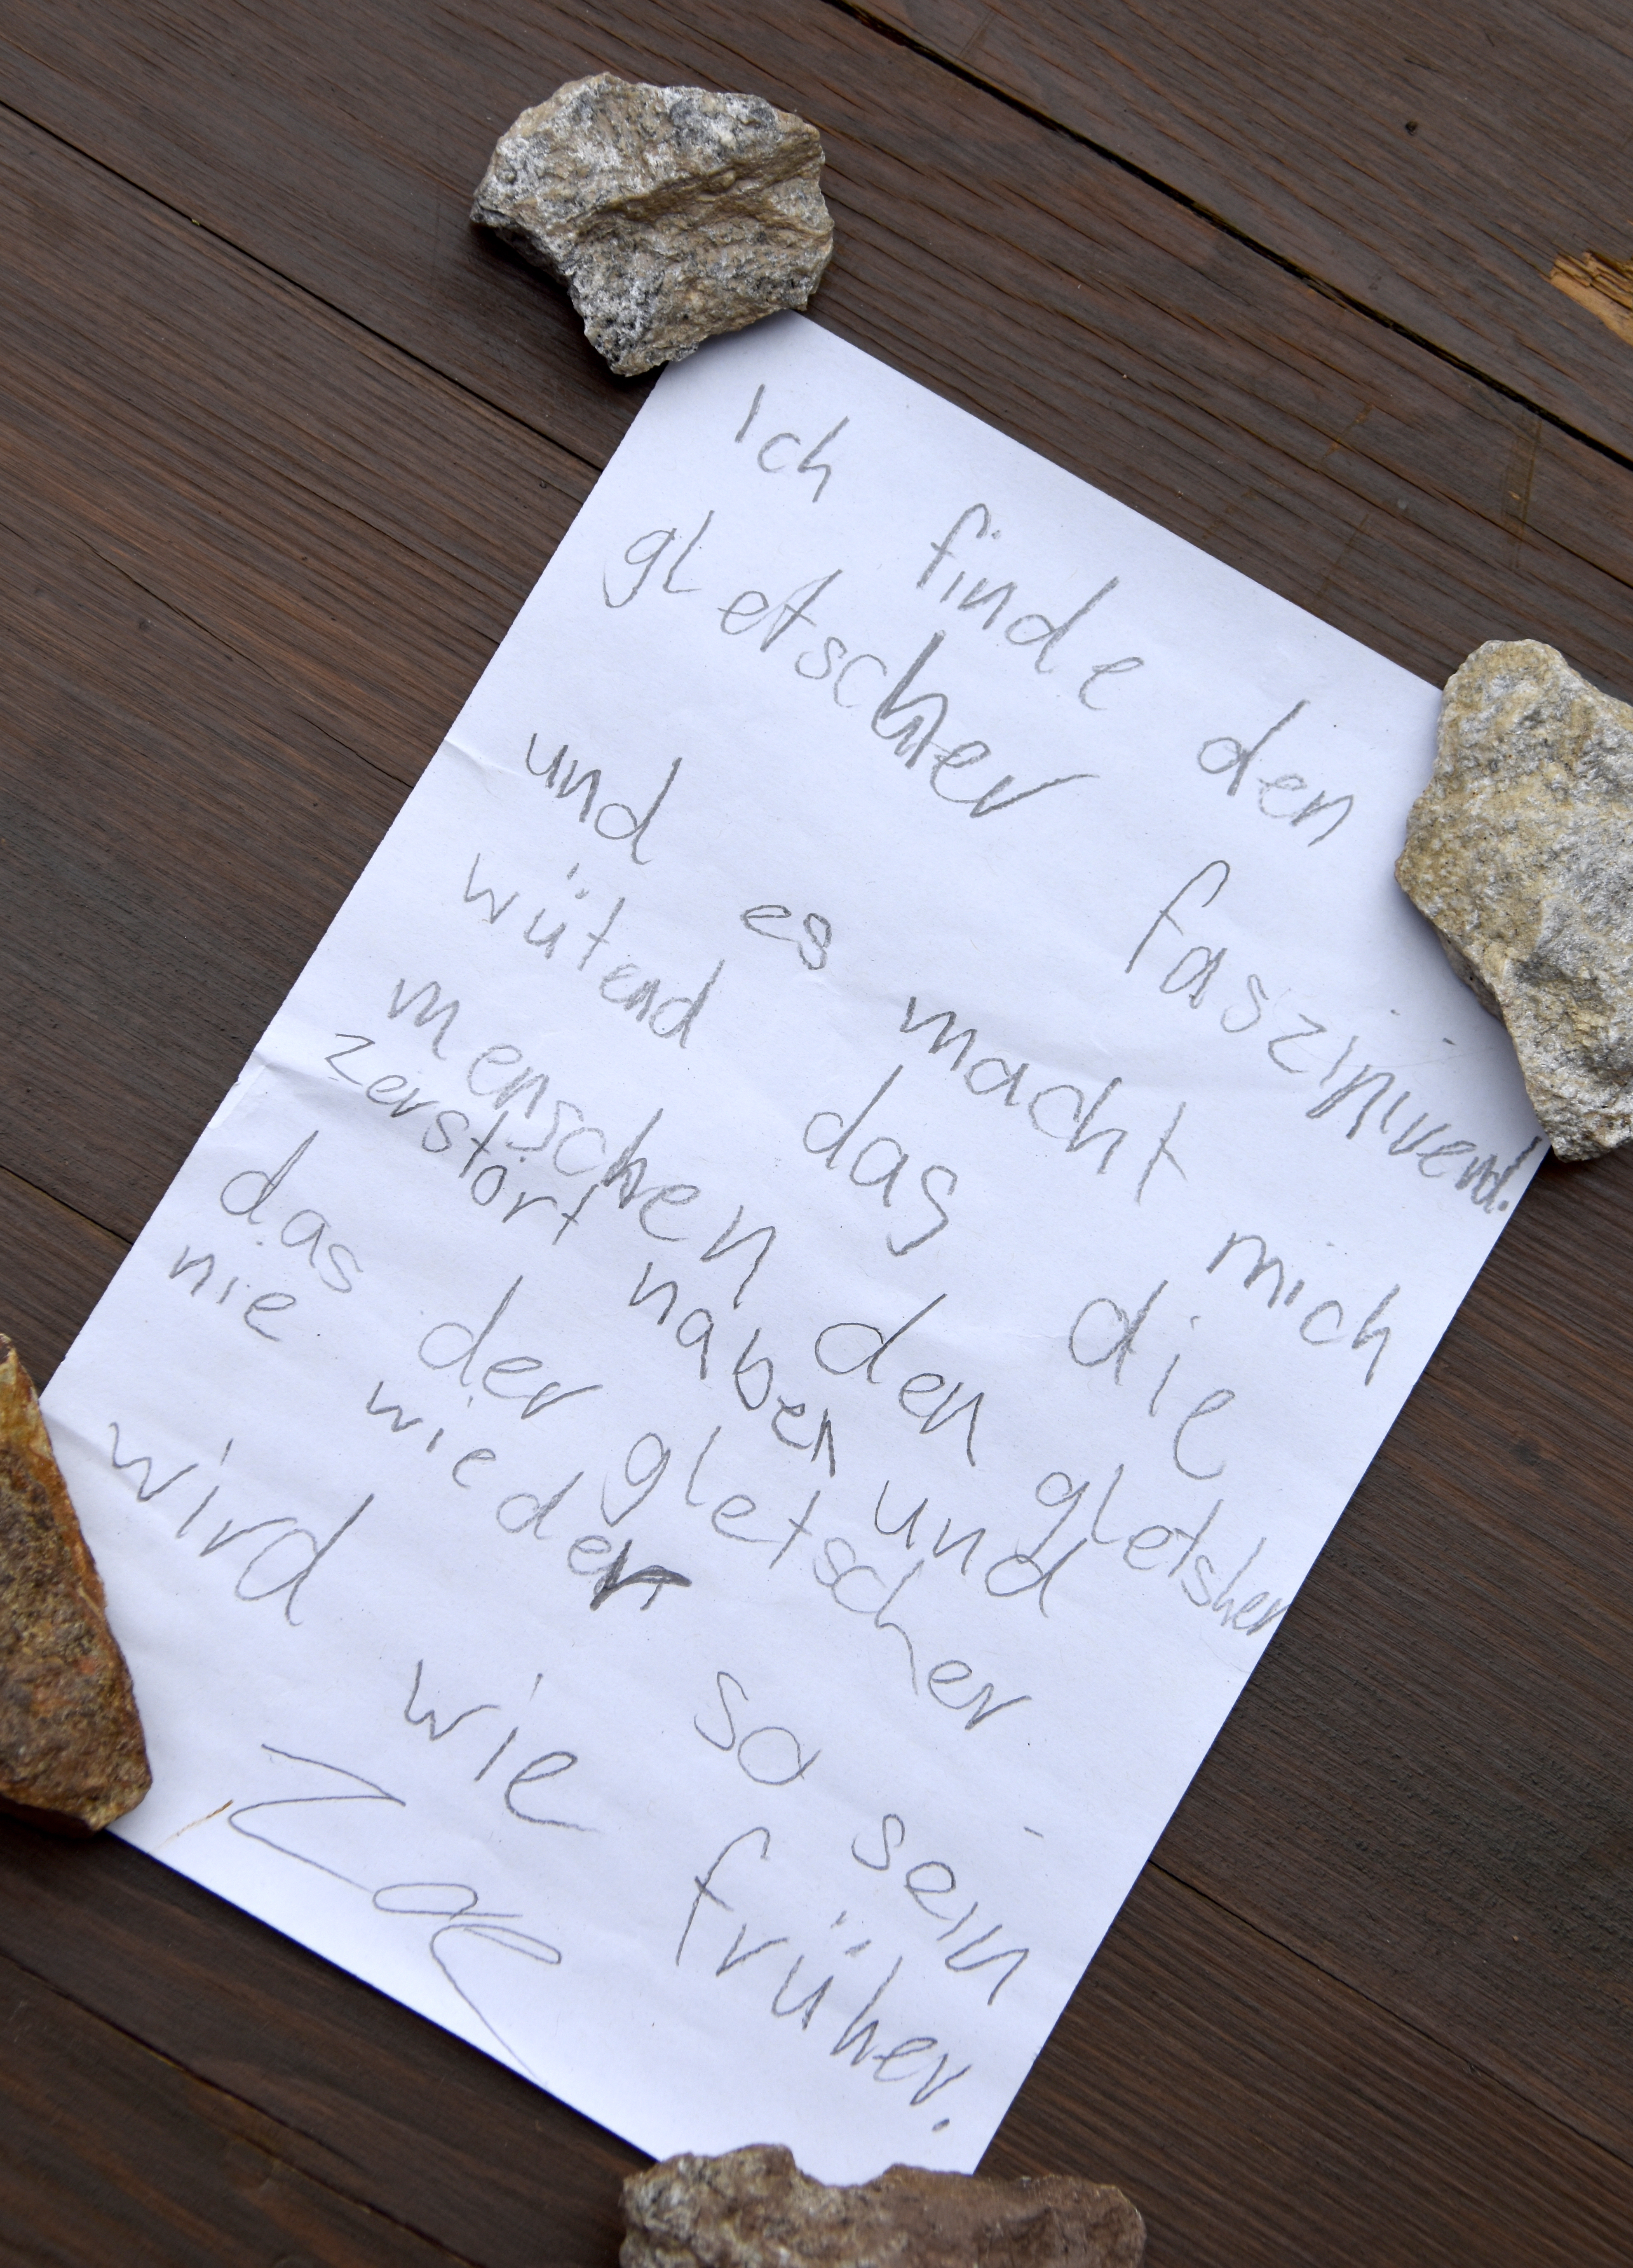 Ich finde den
gletscher faszinirend.
und es macht mich
wütend das die
menschen den gletsher
zerstört haben und
das der gletscher
nie wieder so sein
wird wie früher.
Zoe